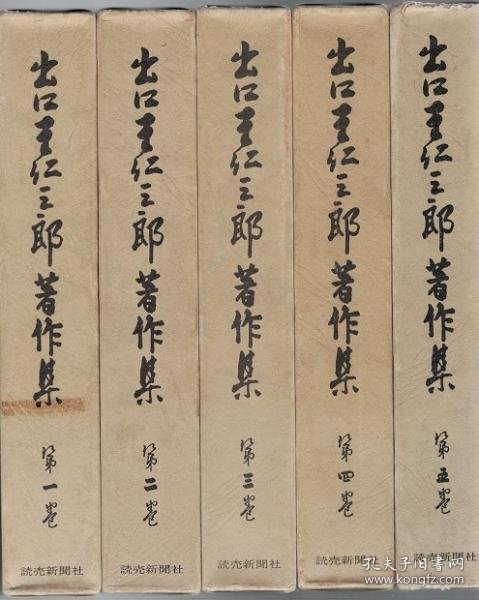 出口王仁三郎著作集 第一巻
読売新聞社
出口王仁三郎著作集 第二巻
読売新聞社
出口王仁三郎著作集 第三巻
読売新聞社
出口王仁三郎著作集 第四巻
読売新聞社
出口王仁三郎著作集 第五巻
読売新聞社
孔夫子旧书网
www.kongfz.com